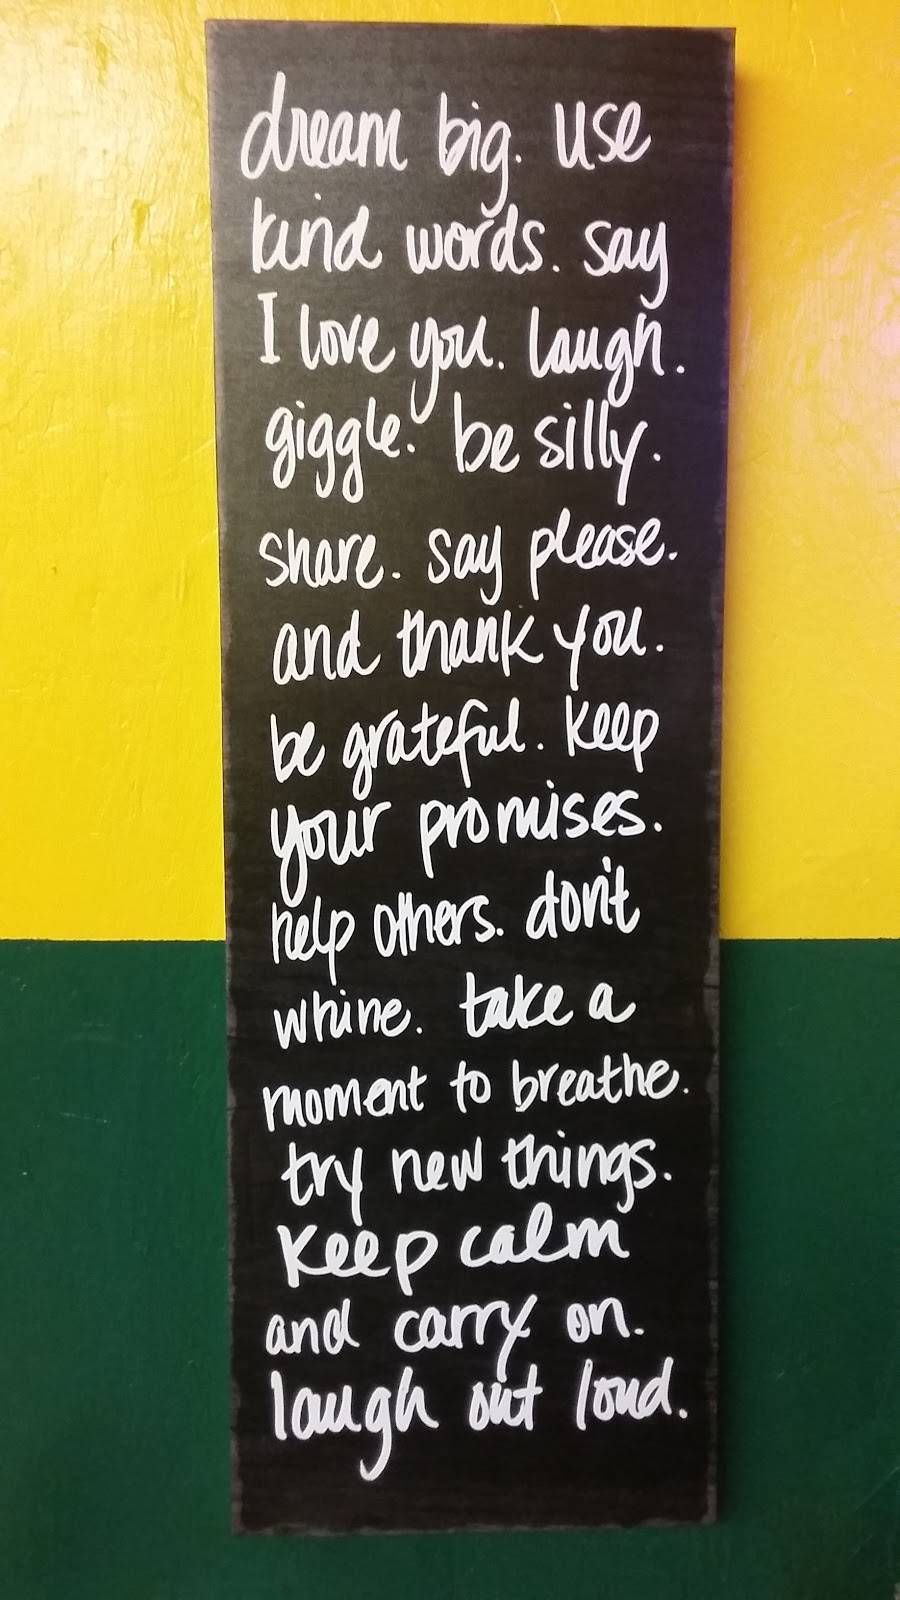 dream big. use
kind words. say
I love you. laugh.
giggle. be silly.
share. say please.
and thank you.
be grateful. keep
your promises.
help others. don't
whine. take a
moment to breathe.
try new things.
keep calm
and carry on.
laugh out loud.